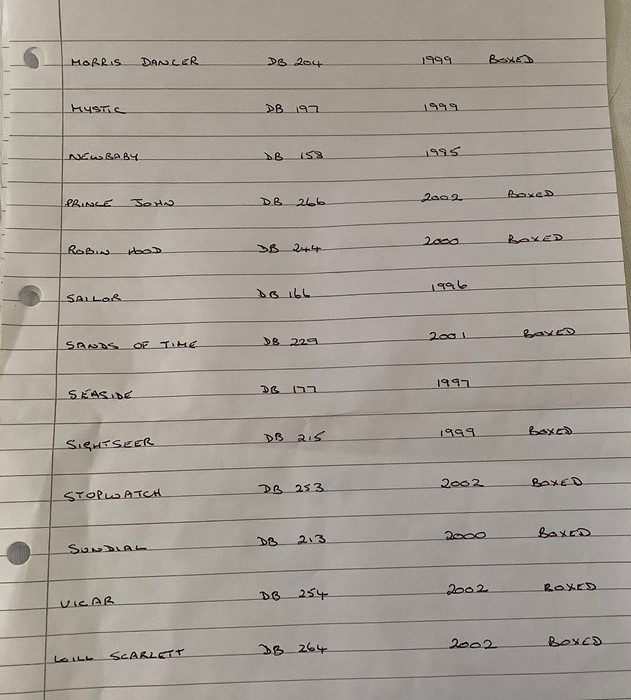 MORRIS DANCER DB 204 1999 BOXED
MYSTIC DB 197 1999
NEWBABY DB 158 1995
PRINCE JOHN DB 266 2002 BOXED
ROBIN HOOD DB 244 2000 BOXED
SAILOR DB 166 1996
SANDS OF TIME DB 229 2001 BOXED
SEASIDE DB 177 1997
SIGHTSEER DB 215 1999 BOXED
STOPWATCH DB 253 2002 BOXED
SUNDIAL DB 213 2000 BOXED
VICAR DB 254 2002 BOXED
WILL SCARLETT DB 264 2002 BOXED